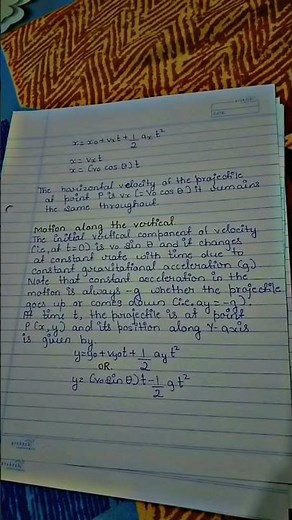 x = x₀ + vₓt + 1/2 aₓ t²
x = vₓt
x = (v₀ cos θ) t
The horizontal velocity of the projectile
at point P is vx (= v₀ cos θ) it remains
the same throughout.
Motion along the vertical
The initial vertical component of velocity
(i.e, at t=0) is v₀ sin θ and it changes
at constant rate with time due to
constant gravitational acceleration (g)
Note that constant acceleration in the
motion is always -g whether the projectile
goes up or comes down (i.e, ay = -g).
At time t, the projectile is at point
P(x,y) and its position along Y-axis
is given by
y = y₀ + vy₀t + 1/2 ay t²
OR
y = (v₀ sin θ) t - 1/2 g t²